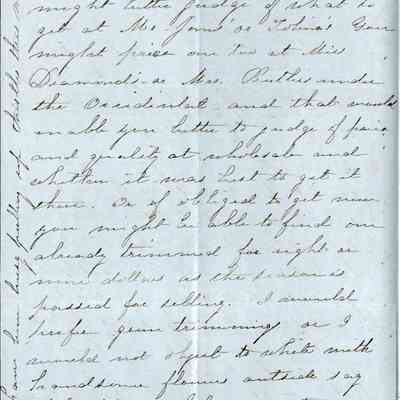 might better judge of what to
get at Mc Jones' or Tobin's You
might price one too at Miss
Diamond's or Mrs. Butler's under
the Occidental - and that would
enable you better to judge of price
and quality at wholesale and
whether it was best to get it
there. Or if obliged to get new
you might be able to find one
already trimmed for eight or
nine dollars as the season is
passed for selling. I would
prefer green trimming or I
would not object to white with
handsome flowers outside say